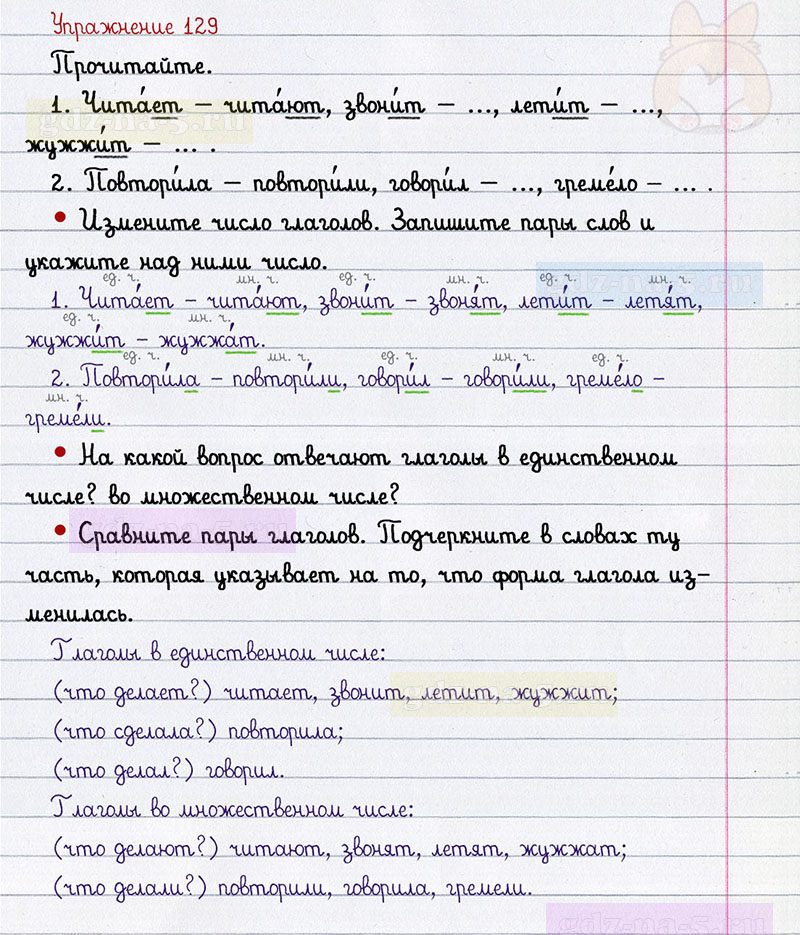 Упражнение 129
Прочитайте.
gdz-na-5.ru
1. Чита́ет – чита́ют, звони́т – ..., лети́т – ...,
жужжи́т – ... .
2. Повтори́ла – повтори́ли, говори́л – ..., греме́ло – ... .
• Измените число глаголов. Запишите пары слов и
укажите над ними число.
gdz-na-5.ru
ед. ч. мн. ч. ед. ч. мн. ч. ед. ч. мн. ч.
1. Чита́ет – чита́ют, звони́т – звоня́т, лети́т – летя́т,
ед. ч. мн. ч.
жужжи́т – жужжа́т.
ед. ч. мн. ч. ед. ч. мн. ч. ед. ч.
2. Повтори́ла – повтори́ли, говори́л – говори́ли, греме́ло –
мн. ч.
греме́ли.
• На какой вопрос отвечают глаголы в единственном
числе? во множественном числе?
gdz-na-5.ru
• Сравните пары глаголов. Подчеркните в словах ту
часть, которая указывает на то, что форма глагола из–
менилась.
Глаголы в единственном числе:
(что делает?) читает, звонит, летит, жужжит;
gdz-na-5.ru
(что сделала?) повторила;
(что делал?) говорил.
Глаголы во множественном числе:
(что делают?) читают, звонят, летят, жужжат;
(что делали?) повторили, говорила, гремели.
gdz-na-5.ru